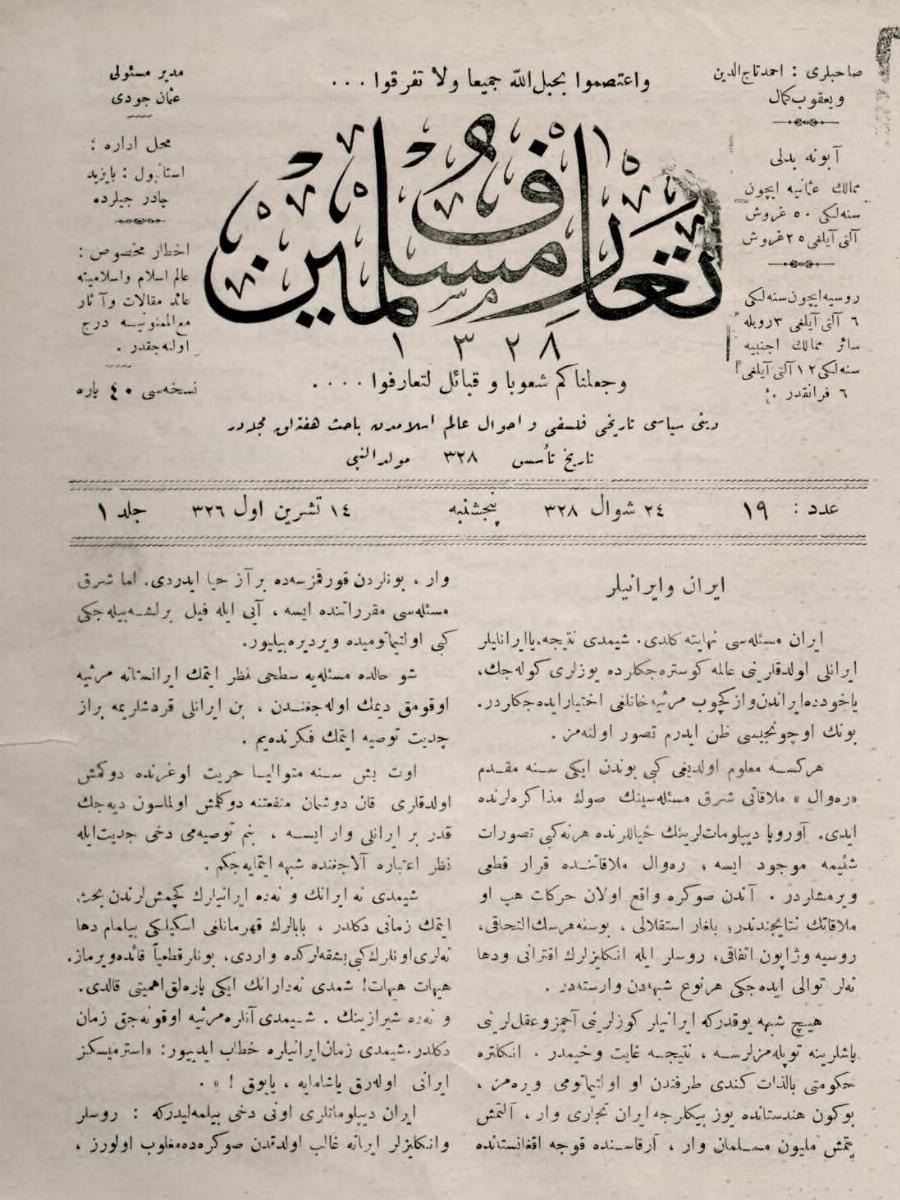 صاحبلری : احمد تاج‌الدین
و یعقوب کمال
آبونه بدلی
ممالك عثمانیه ایچون
سنه‌لکی ٥٠ غروش
آلتی آیلغی ٢٥ غروش
روسیه ایچون سنه‌لکی
٦ آلتی آیلغی ٣ روبله
سائر ممالك اجنبیه
سنه‌لکی ١٢ آلتی آیلغی
٦ فرانقدر .
واعتصموا بحبل‌الله جمیعا ولا تفرقوا ...
تعارف مسلمین
١٣٢٨
وجعلناکم شعوبا و قبائل لتعارفوا ....
مدیر مسئولی
عثمان جودی
محل اداره :
استانبول : بایزید
چادرجیلرده
اخطار مخصوص :
عالم اسلام و اسلامیته
عائد مقالات و آثار
مع‌الممنونیه درج
اولنه‌جقدر .
نسخه‌سی ٤٠ پاره
دینی سیاسی تاریخی فلسفی و احوال عالم اسلامدن باحث هفته‌لق مجله‌در
تاریخ تأسیس ٣٢٨ مولد النبی
عدد : ١٩ ٢٤ شوال ٣٢٨ پنجشنبه ١٤ تشرین اول ٣٢٦ جلد ١
ایران و ایرانیلر
ایران مسئله‌سی نهایته کلدی. شیمدی نتیجه، یا ایرانلیلر
ایرانلی اولدقلرینی عالمه کوستره‌جکلرده یوزلری کوله‌جك،
یاخودده ایراندن وازکچوب مرثیه‌خانلغی اختیار ایده‌جکلردر.
بونك اوچونجیسی ظن ایدرم تصور اولنه‌مز .
هرکسه معلوم اولدیغی کبی بوندن ایکی سنه مقدم
«ره‌وال» ملاقاتی شرق مسئله‌سینك صوك مذاکره‌لرنده
ایدی. آوروپا دیپلوماتلرینك خیاللرنده هرنه‌کبی تصورات
شئیمه موجود ایسه ، ره‌وال ملاقاتنده قرار قطعی
ویرمشلردر . آندن صوکره واقع اولان حرکات هپ او
ملاقاتك نتایجندندر؛ بلغار استقلالی ، بوسنه هرسك التحاقی،
روسیه وژاپون اتفاقی، روسلر ایله انکلیزلرك اقترانی ودها
نه‌لر توالی ایده‌جکی هرنوع شبهه‌دن وارسته‌در .
هیچ شبهه یوقدرکه ایرانیلر کوزلرینی آچمز و عقللرینی
باشلرینه توپله‌مزلرسه ، نتیجه غایت وخیمدر . انکلتره
حکومتی بالذات کندی طرفندن او اولتیماتومی ویره‌مز ،
بوکون هندستانده یوز بیکلرجه ایران تجاری وار ، آلتمش
یتمش ملیون مسلمان وار ، آرقاسنده قوجه افغانستانده
وار ، بونلردن قورقمزسه‌ده بر آز حیا ایدردی. اما شرق
مسئله‌سی مقرراتنده ایسه ، آیی ایله فیل برلشه‌بیله‌جکی
کبی اولتیماتومیده ویردیره‌بیلیور.
شو حالده مسئله‌یه سطحی نظر ایتمك ایرانستانه مرثیه
اوقومق دیمك اوله‌جغندن ، بن ایرانلی قرداشلریمه براز
جدیت توصیه ایتمك فکرنده‌یم .
اوت بش سنه متوالیا حریت اوغرنده دوکمش
اولدقلری قان دوشمان منفعتنه دوکلمش اولماسون دیه‌جك
قدر بر ایرانلی وار ایسه ، بنم توصیه‌می دخی جدیت‌ایله
نظر اعتباره آلاجغنده شبهه ایتمایه‌جکم .
شیمدی نه ایرانك و نه‌ده ایرانیلرك کچمش‌لرندن بحث
ایتمك زمانی دکلدر ، بابالرك قهرمانلغی اسکیلیکی بیلمام دها
نه‌لری اونلرك کبی بشقه‌لرکده واردی، بونلر قطعیاً فائده ویرماز.
هیهات هیهات! شمدی نه دارانك ایکی پاره‌لق اهمیتی قالدی.
و نه‌ده شیرازینك . شیمدی آنلره مرثیه اوقونه‌جق زمان
دکلدر. شیمدی زمان ایرانیلره خطاب ایدییور: «استرمیسکز
ایرانی اوله‌رق یاشامایه ، یایوق ! » .
ایران دیپلوماتلری اونی دخی بیلمه‌لیدرکه : روسلر
وانکلیزلر ایرانه غالب اولدقدن صوکره‌ده مغلوب اولورز ،